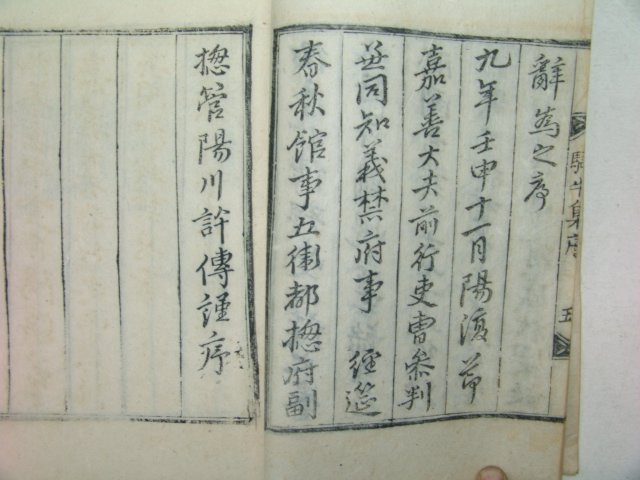 辭爲之序
九年壬申十一月陽復節
嘉善大夫前行吏曹參判
兼同知義禁府事 經筵
春秋館事五衛都摠府副
摠管陽川許傳謹序
騎牛集序
五